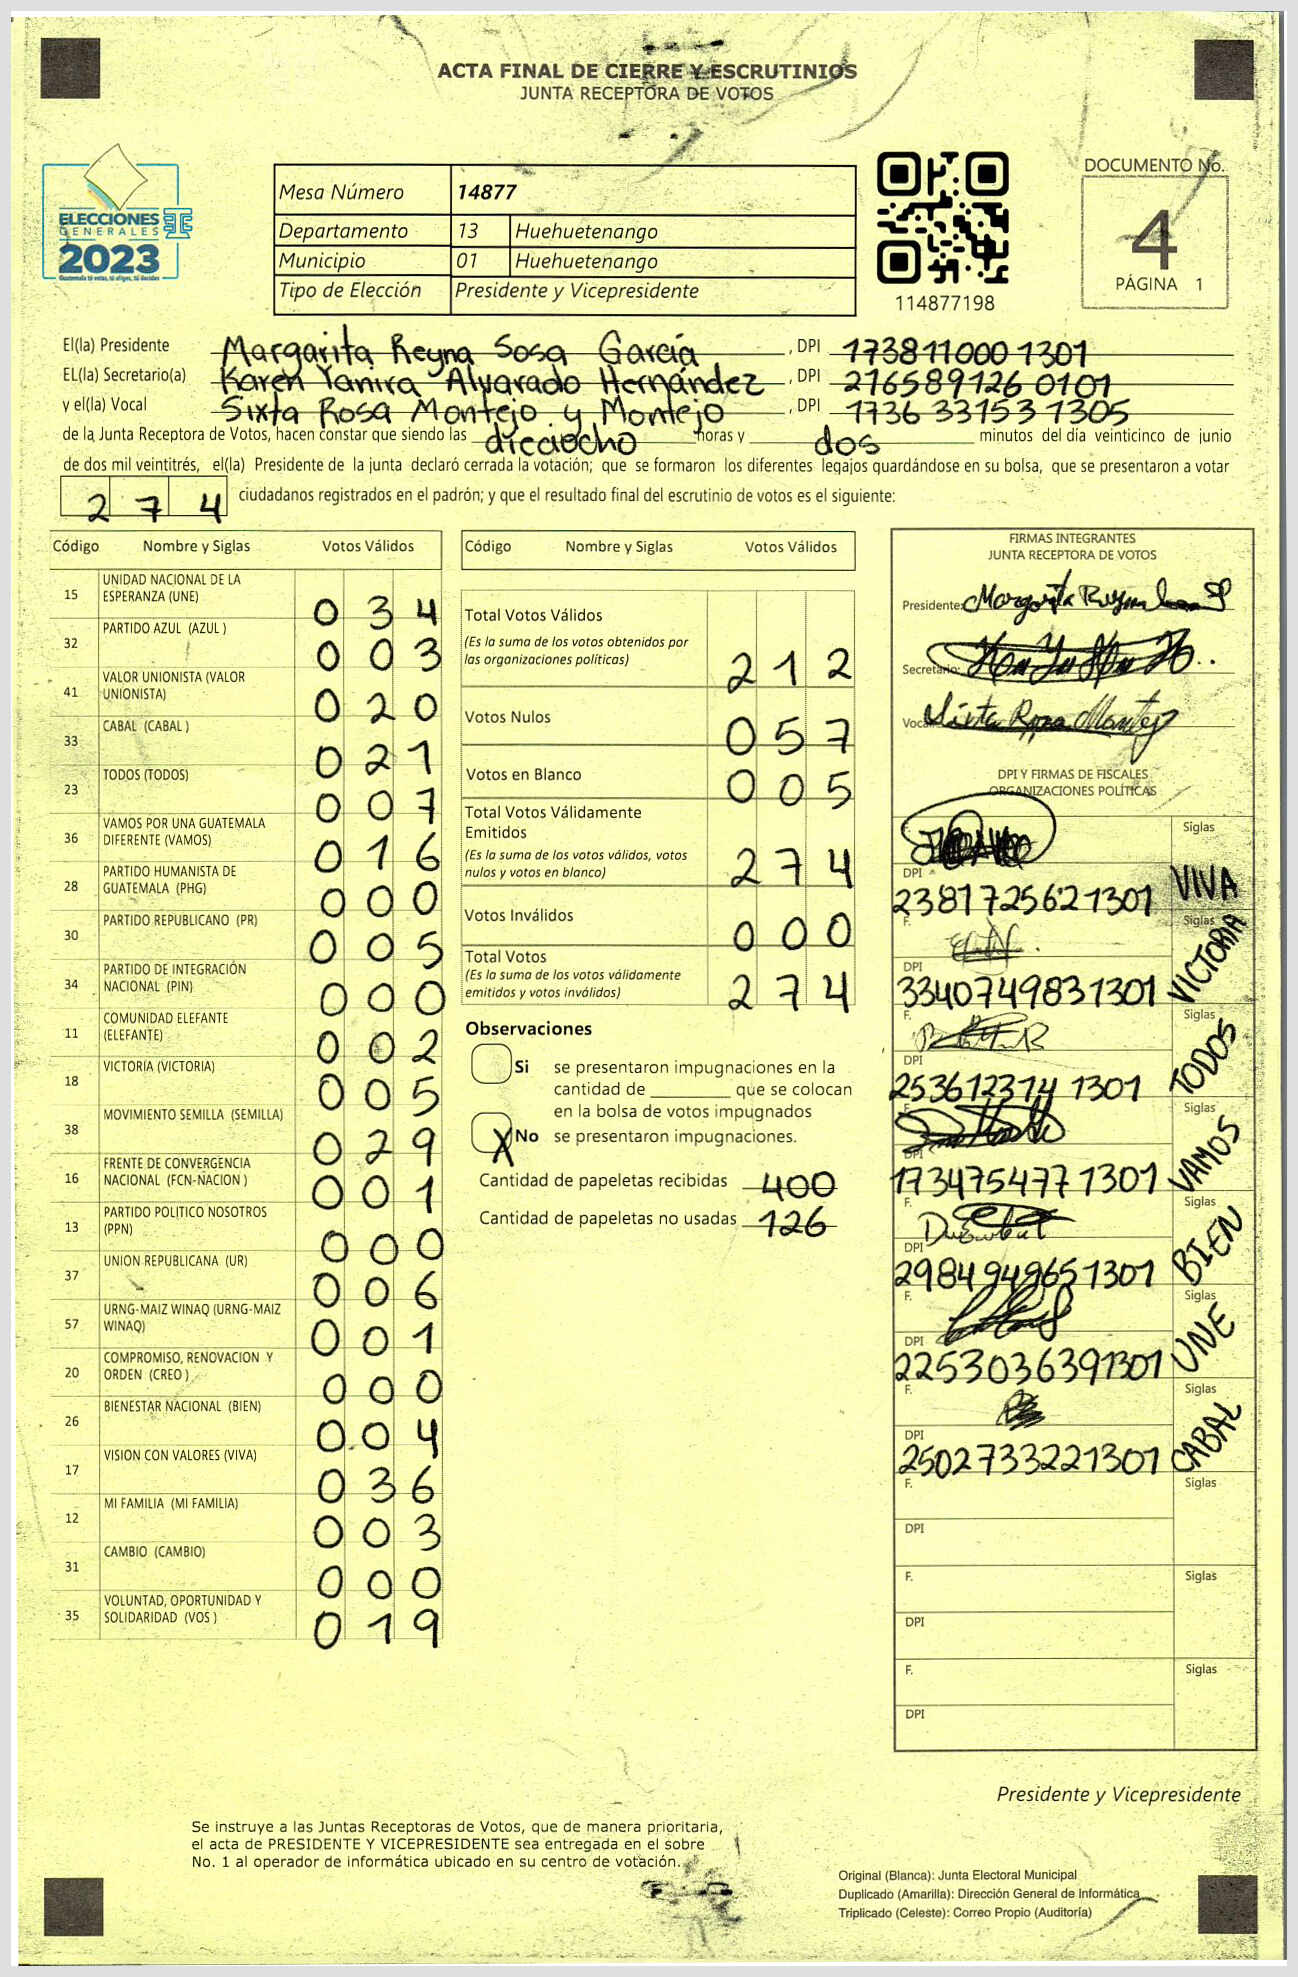 ACTA FINAL DE CIERRE Y ESCRUTINIOS
JUNTA RECEPTORA DE VOTOS
ELECCIONES
GENERALES
2023
Guatemala tú votas, tú eliges, tú decides
Mesa Número 14877
Departamento 13 Huehuetenango
Municipio 01 Huehuetenango
Tipo de Elección Presidente y Vicepresidente
114877198
DOCUMENTO No.
4
PÁGINA 1
El(la) Presidente Margarita Reyna Sosa García , DPI 173811000 1301
EL(la) Secretario(a) Karen Yanira Alvarado Hernández , DPI 216589126 0101
y el(la) Vocal Sixta Rosa Montejo y Montejo , DPI 1736 33153 1305
de la Junta Receptora de Votos, hacen constar que siendo las dieciocho horas y dos minutos del día veinticinco de junio
de dos mil veintitrés, el(la) Presidente de la junta declaró cerrada la votación; que se formaron los diferentes legajos guardándose en su bolsa, que se presentaron a votar
274 ciudadanos registrados en el padrón; y que el resultado final del escrutinio de votos es el siguiente:
Código Nombre y Siglas Votos Válidos
15 UNIDAD NACIONAL DE LA ESPERANZA (UNE) 034
32 PARTIDO AZUL (AZUL ) 003
41 VALOR UNIONISTA (VALOR UNIONISTA) 020
33 CABAL (CABAL ) 021
23 TODOS (TODOS) 007
36 VAMOS POR UNA GUATEMALA DIFERENTE (VAMOS) 016
28 PARTIDO HUMANISTA DE GUATEMALA (PHG) 000
30 PARTIDO REPUBLICANO (PR) 005
34 PARTIDO DE INTEGRACIÓN NACIONAL (PIN) 000
11 COMUNIDAD ELEFANTE (ELEFANTE) 002
18 VICTORIA (VICTORIA) 005
38 MOVIMIENTO SEMILLA (SEMILLA) 029
16 FRENTE DE CONVERGENCIA NACIONAL (FCN-NACION ) 001
13 PARTIDO POLITICO NOSOTROS (PPN) 000
37 UNION REPUBLICANA (UR) 006
57 URNG-MAIZ WINAQ (URNG-MAIZ WINAQ) 001
20 COMPROMISO, RENOVACION Y ORDEN (CREO ) 000
26 BIENESTAR NACIONAL (BIEN) 004
17 VISION CON VALORES (VIVA) 036
12 MI FAMILIA (MI FAMILIA) 003
31 CAMBIO (CAMBIO) 000
35 VOLUNTAD, OPORTUNIDAD Y SOLIDARIDAD (VOS ) 019
Código Nombre y Siglas Votos Válidos
Total Votos Válidos
(Es la suma de los votos obtenidos por
las organizaciones políticas) 212
Votos Nulos 057
Votos en Blanco 005
Total Votos Válidamente
Emitidos
(Es la suma de los votos válidos, votos
nulos y votos en blanco) 274
Votos Inválidos 000
Total Votos
(Es la suma de los votos válidamente
emitidos y votos inválidos) 274
Observaciones
Si se presentaron impugnaciones en la
cantidad de ________ que se colocan
en la bolsa de votos impugnados
X No se presentaron impugnaciones.
Cantidad de papeletas recibidas 400
Cantidad de papeletas no usadas 126
FIRMAS INTEGRANTES
JUNTA RECEPTORA DE VOTOS
Presidente:
Secretario:
Vocal: Sixta Rosa Montejo
DPI Y FIRMAS DE FISCALES
ORGANIZACIONES POLÍTICAS
Siglas
DPI
2381725621301 VIVA
F. Siglas
DPI
3340749831301 VICTORIA
F. Siglas
DPI
253612314 1301 TODOS
F. Siglas
DPI
173475477 1301 VAMOS
F. Siglas
DPI
2984949651301 BIEN
F. Siglas
DPI
2253036391301 UNE
F. Siglas
DPI
2502733221301 CABAL
F. Siglas
DPI
F. Siglas
DPI
F. Siglas
DPI
Presidente y Vicepresidente
Se instruye a las Juntas Receptoras de Votos, que de manera prioritaria,
el acta de PRESIDENTE Y VICEPRESIDENTE sea entregada en el sobre
No. 1 al operador de informática ubicado en su centro de votación.
Original (Blanca): Junta Electoral Municipal
Duplicado (Amarilla): Dirección General de Informática
Triplicado (Celeste): Correo Propio (Auditoría)